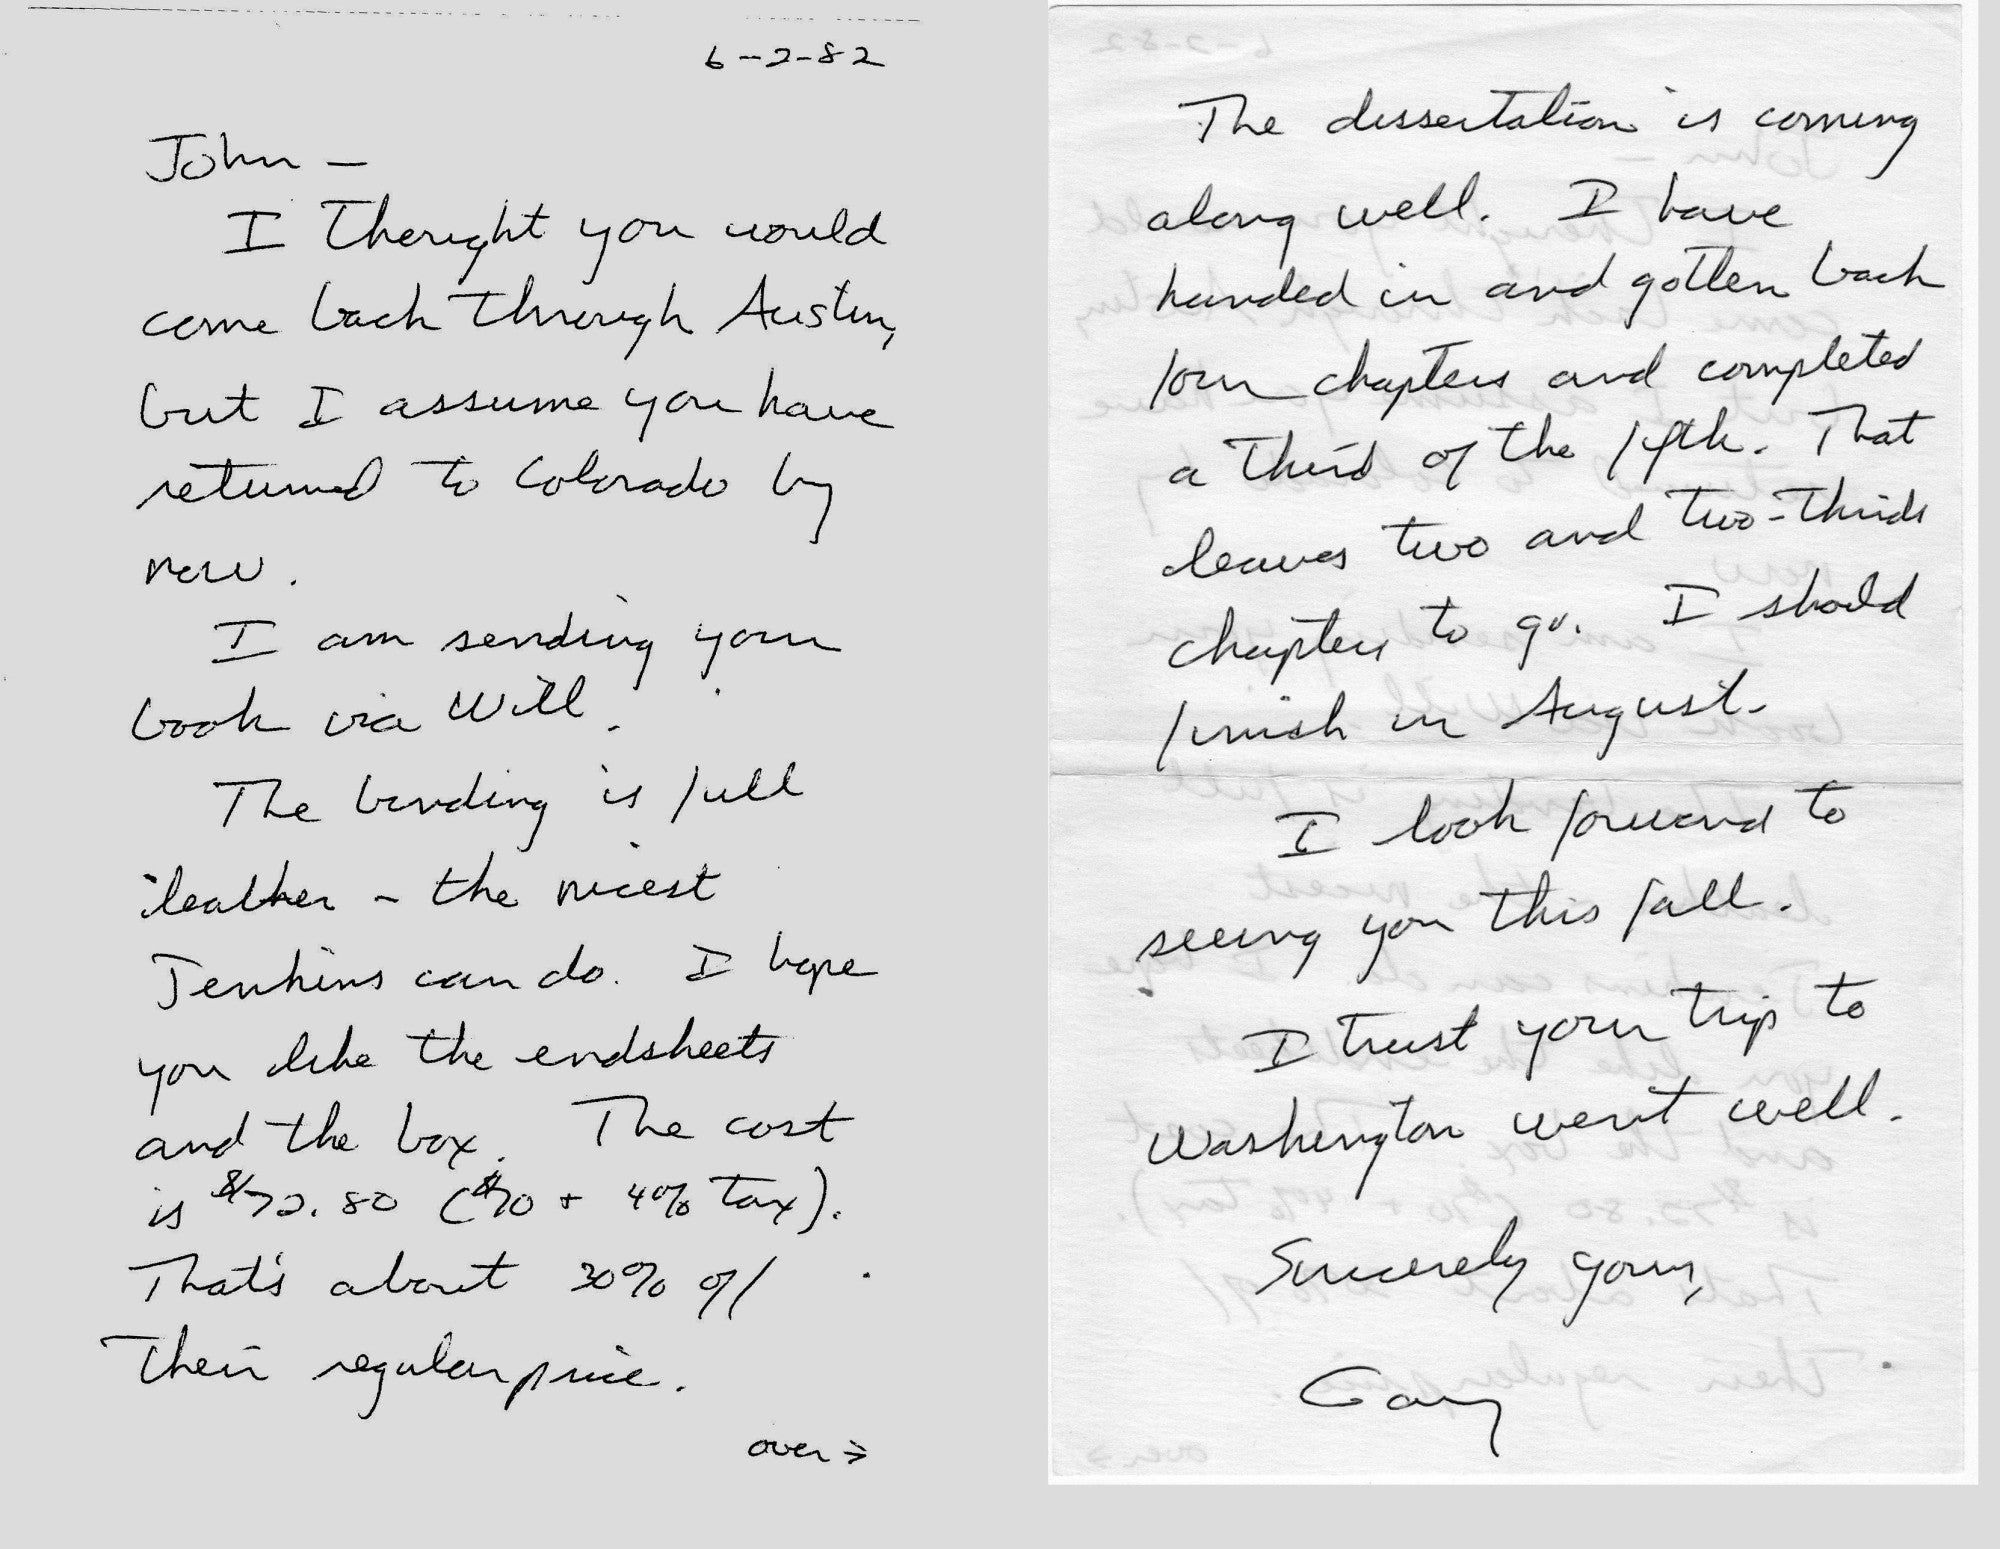 6-2-82
John —
I thought you would
come back through Austin,
but I assume you have
returned to Colorado by
now.
I am sending your
book via Will.
The binding is full
leather - the nicest
Jenkins can do. I hope
you like the endsheets
and the box. The cost
is $72.80 ($70 + 4% tax).
That's about 30% of
their regular price.
over →
The dissertation is coming
along well. I have
handed in and gotten back
four chapters and completed
a third of the fifth. That
leaves two and two-thirds
chapters to go. I should
finish in August.
I look forward to
seeing you this fall.
I trust your trip to
Washington went well.
Sincerely yours,
Gary